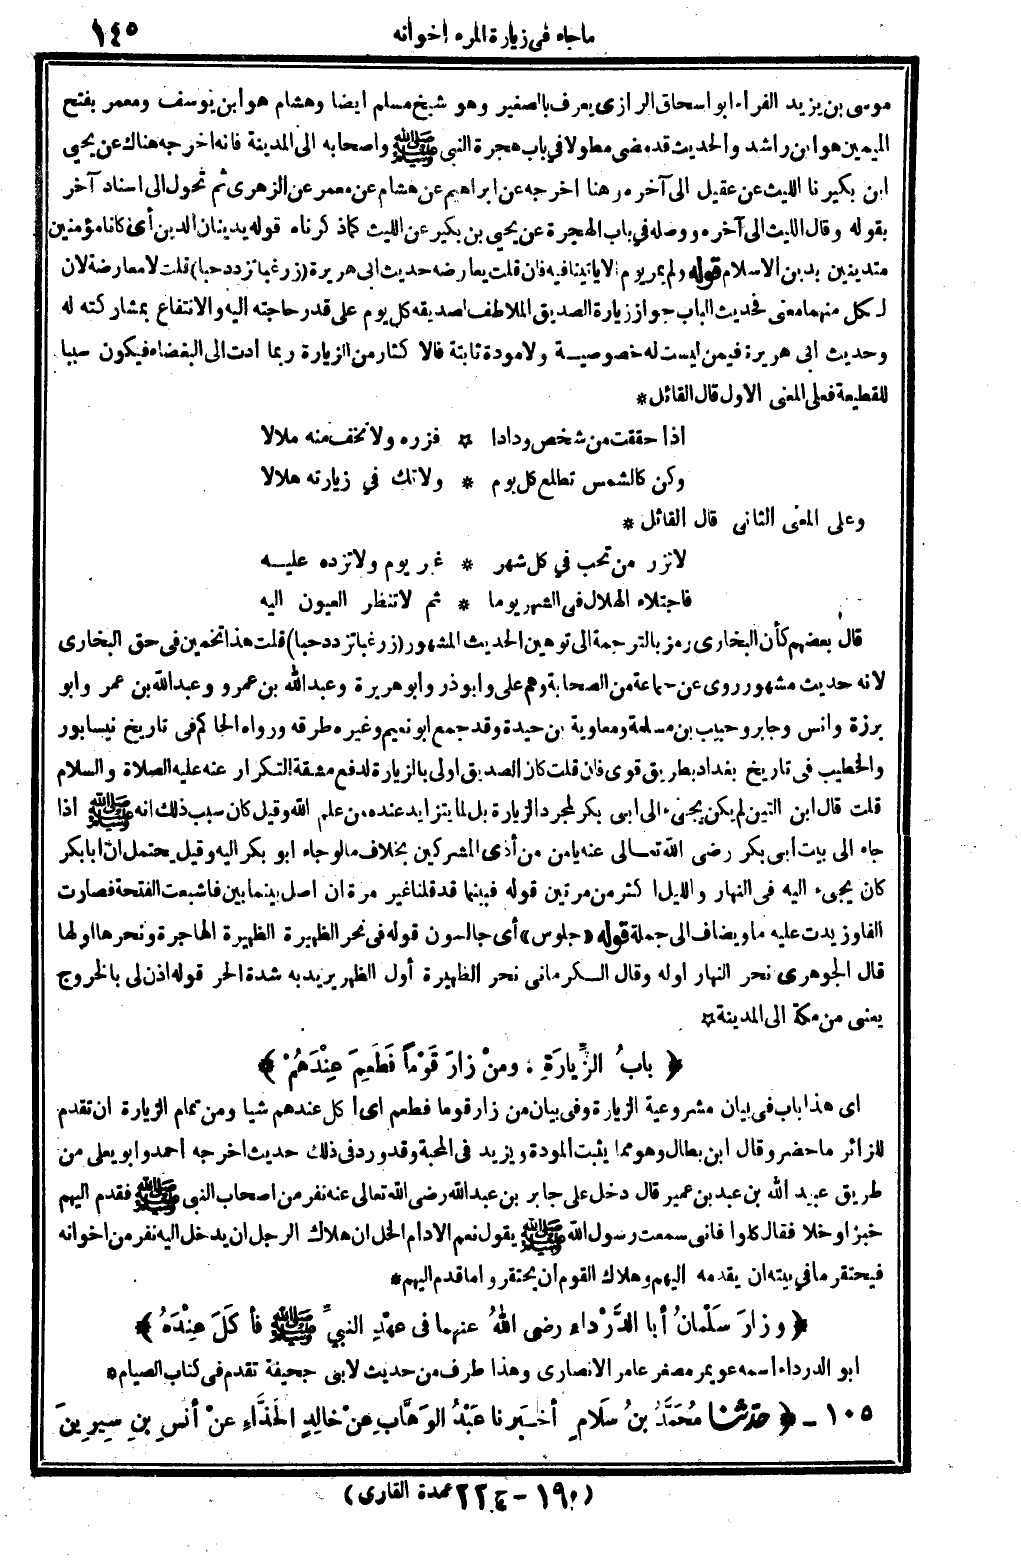 ماجاء فى زيارة المرء إخوانه ١٤٥
موسى بن يزيد الفراء ابو اسحاق الرازى يعرف بالصغير وهو شيخ مسلم ايضا وهشام هو ابن يوسف ومعمر بفتح
الميمين هو ابن راشد والحديث قد مضى مطولا في باب هجرة النبى ﷺ واصحابه الى المدينة فانه اخرجه هناك عن يحيى
ابن بكير نا الليث عن عقيل الى آخره وهنا اخرجه عن ابراهيم عن هشام عن معمر عن الزهرى ثم تحول الى اسناد آخر
بقوله وقال الليث الى آخره ووصله في باب الهجرة عن يحيى بن بكير عن الليث كماذ كرناه قوله يدينان الدين أى كانا مؤمنين
متدينين بدين الاسلام قوله ولم يمر يوم الا ياتينا فيه فان قلت يعارضه حديث ابى هريرة (زر غبا تزدد حبا) قلت لا معارضة لان
لكل منهما معنى فحديث الباب جواز زيارة الصديق الملاطف لصديقه كل يوم على قدر حاجته اليه والانتفاع بمشاركته له
وحديث ابى هريرة فيمن ليست له خصوصية ولا مودة ثابتة فالاكثار من الزيارة ربما أدت الى البغضاء فيكون سببا
للقطيعة فعلى المعنى الاول قال القائل *
اذا حققت من شخص ودادا ☆ فزره ولا تخف منه ملالا
وكن كالشمس تطلع كل يوم * ولا تك في زيارته هلالا
وعلى المعنى الثانى قال القائل *
لا تزر من تحب في كل شهر * غير يوم ولا تزده عليه
فاجتلاء الهلال فى الشهر يوما * ثم لا تنظر العيون اليه
قال بعضهم كأن البخارى رمز بالترجمة الى توهين الحديث المشهور (زر غبا تزدد حبا) قلت هذا تخمين فى حق البخارى
لانه حديث مشهور روى عن جماعة من الصحابة وهم على وابو ذر وابو هريرة وعبد الله بن عمرو وعبد الله بن عمر وابو
برزة وانس وجابر وحبيب بن مسلمة ومعاوية بن حيدة وقد جمع ابو نعيم وغيره طرقه ورواه الحاكم فى تاريخ نيسابور
والخطيب فى تاريخ بغداد بطريق قوى فان قلت كان الصديق اولى بالزيارة لدفع مشقة التكرار عنه عليه الصلاة والسلام
قلت قال ابن التين لم يكن يجىء الى ابى بكر لمجرد الزيارة بل لما يتزايد عنده من علم الله وقيل كان سبب ذلك انه ﷺ اذا
جاء الى بيت أبى بكر رضى الله تعالى عنه يامن من أذى المشركين بخلاف مالو جاء ابو بكر اليه وقيل يحتمل ان ابا بكر
كان يجىء اليه فى النهار والليل اكثر من مرتين قوله فبينما قد قلنا غير مرة ان اصل بينما بين فاشبعت الفتحة فصارت
الفا وزيدت عليه ما ويضاف الى جملة قوله «جلوس» أى جالسون قوله فى نحر الظهيرة الظهيرة الهاجرة ونحرها اولها
قال الجوهرى نحر النهار اوله وقال الكرمانى نحر الظهيرة أول الظهر يريد به شدة الحر قوله اذن لى بالخروج
يعنى من مكة الى المدينة ☆
﴿ بابُ الزِّيارَةِ ، ومنْ زارَ قَوْماً فَطَعِمَ عِنْدَهُمْ ﴾
اى هذا باب فى بيان مشروعية الزيارة وفى بيان من زار قوما فطعم اى أكل عندهم شيا ومن تمام الزيارة ان تقدم
للزائر ما حضر وقال ابن بطال وهو مما يثبت المودة ويزيد فى المحبة وقد ورد فى ذلك حديث اخرجه أحمد وابو يعلى من
طريق عبيد الله بن عبد بن عمير قال دخل على جابر بن عبد الله رضى الله تعالى عنه نفر من اصحاب النبى ﷺ فقدم اليهم
خبزا وخلا فقال كلوا فانى سمعت رسول الله ﷺ يقول نعم الادام الخل ان هلاك الرجل ان يدخل اليه نفر من اخوانه
فيحتقر ما في بيته ان يقدمه اليهم وهلاك القوم أن يحتقروا ما قدم اليهم *
﴿ وزارَ سَلْمانُ أبا الدَّرْداءِ رضى اللهُ عنهما فى عهْدِ النبيِّ ﷺ فأكَلَ عِنْدَهُ ﴾
ابو الدرداء اسمه عويمر مصغر عامر الانصارى وهذا طرف من حديث لابى جحيفة تقدم فى كتاب الصيام *
١٠٥ - ﴿ حدّثنا مُحَمَّدُ بنُ سَلَامٍ أخبرنا عَبْدُ الوَهَّابِ عنْ خالِدٍ الحَذَّاءِ عنْ أنَسِ بنِ سِيرِينَ
(١٩٠ - ج ٢٢ عمدة القارى)